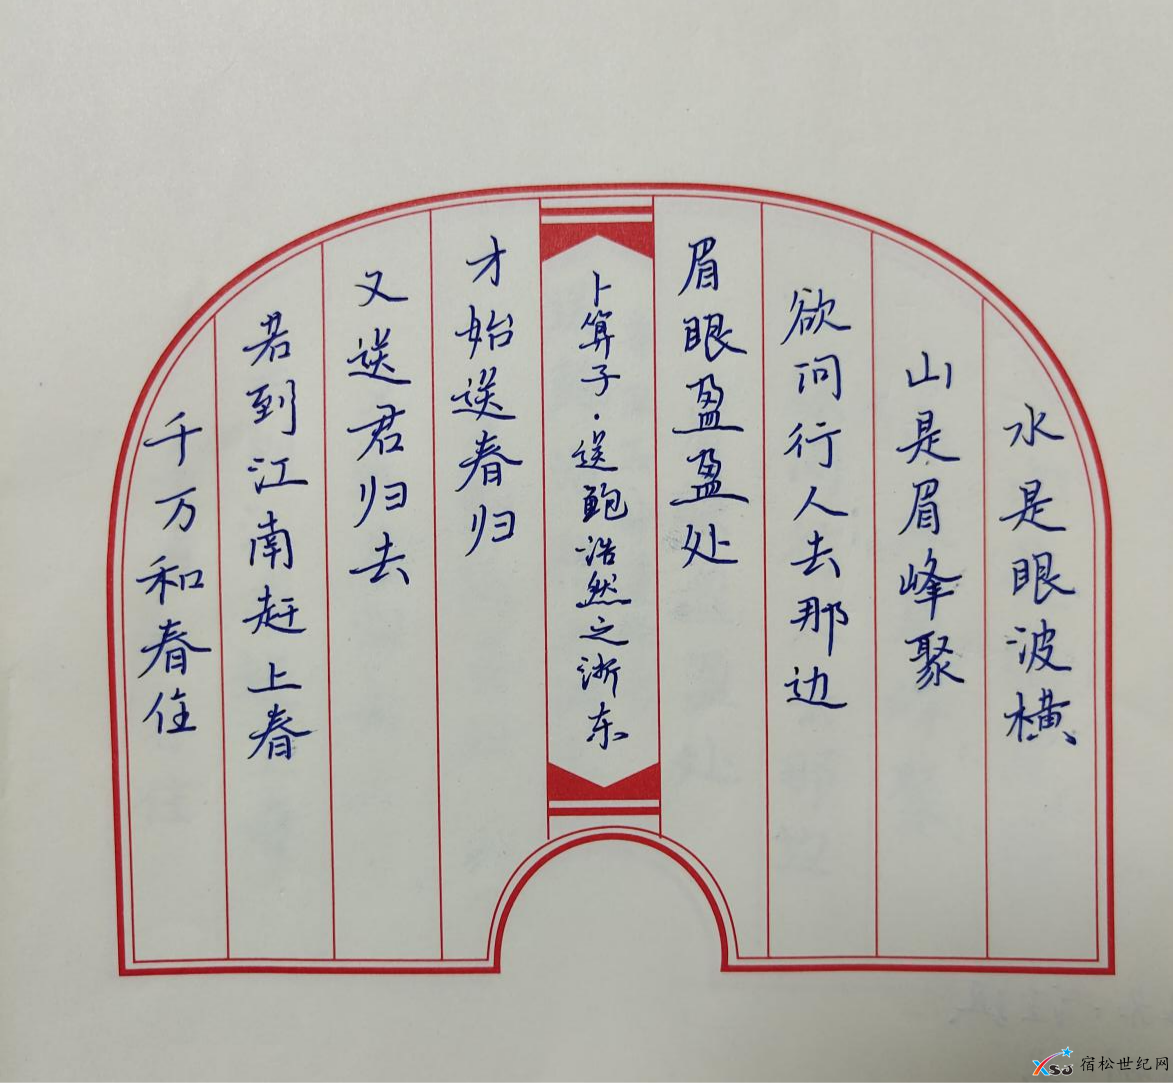 水是眼波横
山是眉峰聚
欲问行人去那边
眉眼盈盈处
卜算子·送鲍浩然之浙东
才始送春归
又送君归去
若到江南赶上春
千万和春住
宿松世纪网